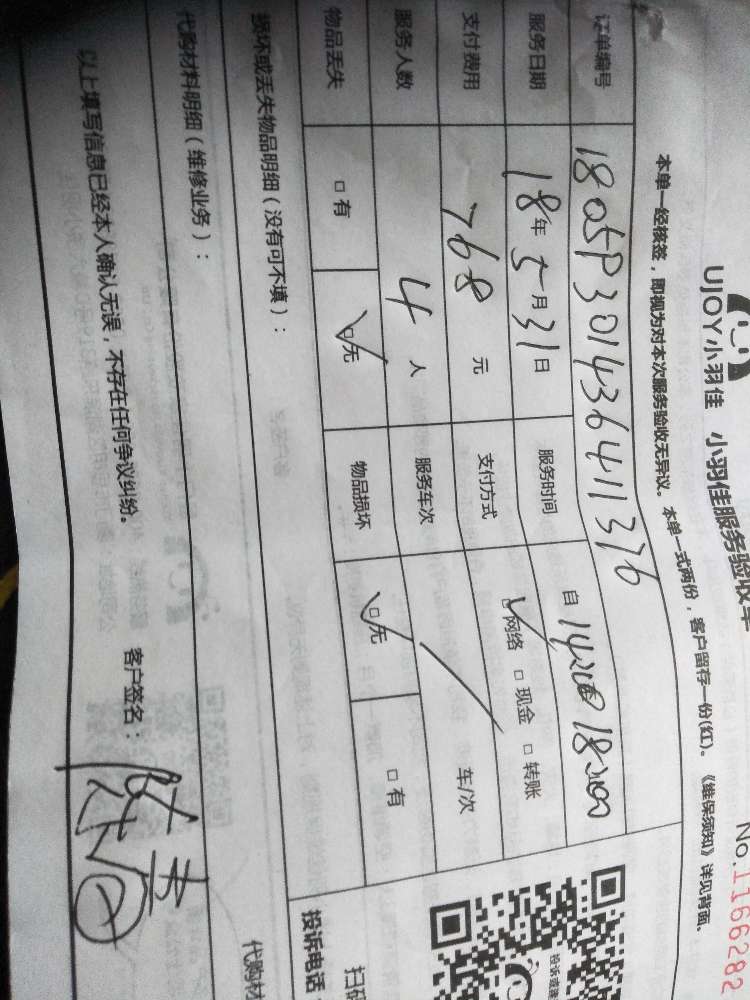 UJOY小羽佳 小羽佳服务验收单
No.1166282
本单一经核签，即视为对本次服务验收无异议。本单一式两份，客户留存一份(红)。《维保须知》详见背面。
订单编号 1805P301436411376
服务日期 18年5月31日 服务时间 自14:00 18:00
支付费用 768元 支付方式 ☑网络 □现金 □转账
服务人数 4人 服务车次 / 车/次
物品丢失 □有 ☑无 物品损坏 ☑无 □有
损坏或丢失物品明细（没有可不填）：
代购材料明细（维修业务）：
以上填写信息已经本人确认无误，不存在任何争议纠纷。 客户签名：
投诉或建
扫码
投诉电话
代购材